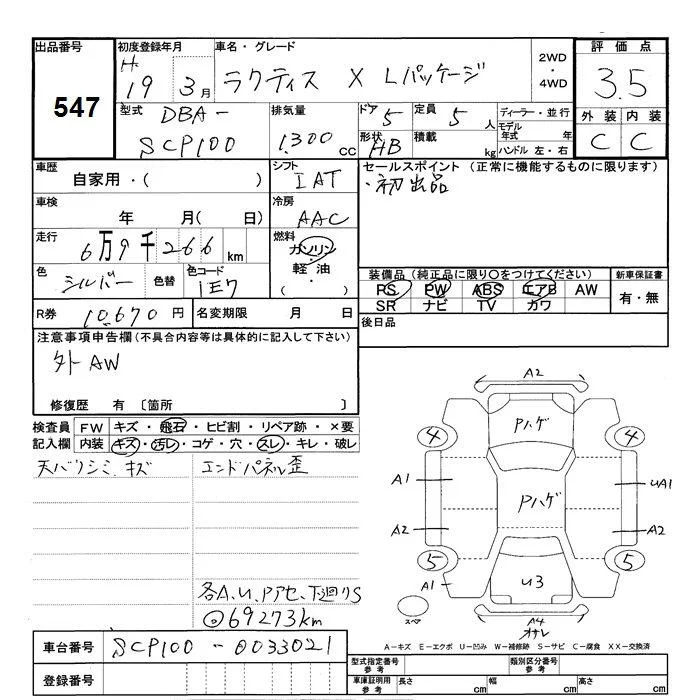 出品番号 547
初度登録年月 H 19 3月
車名・グレード ラクティス X Lパッケージ
2WD・4WD
評価点 3.5
型式 DBA- SCP100
排気量 1300 cc
ドア 5 定員 5 人
形状 HB 積載 kg
ディーラー・並行
モデル年式 年
ハンドル 左・右
外装 内装
C C
車歴 自家用・( )
シフト IAT
セールスポイント (正常に機能するものに限ります)
・初出品
車検 年 月( 日)
冷房 AAC
走行 6万9千266km
燃料 ガソリン・軽油・( )
色 シルバー 色替 色コード 1E7
装備品(純正品に限り○をつけてください)
PS PW ABS エアB AW
SR ナビ TV カワ
新車保証書 有・無
R券 10,670円 名変期限 月 日
後日品
注意事項申告欄(不具合内容等は具体的に記入して下さい)
外AW
修復歴 有 〔箇所 〕
検査員記入欄 FW キズ・飛石・ヒビ割・リペア跡・×要
内装 キズ・汚レ・コゲ・穴・スレ・キレ・破レ
天バリシミ、キズ
エンドパネル歪
各A、U、Pアセ、下廻りS
◎69273km
A2
Pハゲ
4 4
A1 UA1
Pハゲ
A2 A2
5 5
A1 U3
スペア
A4
オサレ
A-キズ E-エクボ U-凹み W-補修跡 S-サビ C-腐食 XX-交換済
車台番号 SCP100-0033021
登録番号
型式指定番号 参考 類別区分番号 参考
車庫証明用 参考 長さ cm 幅 cm 高さ cm